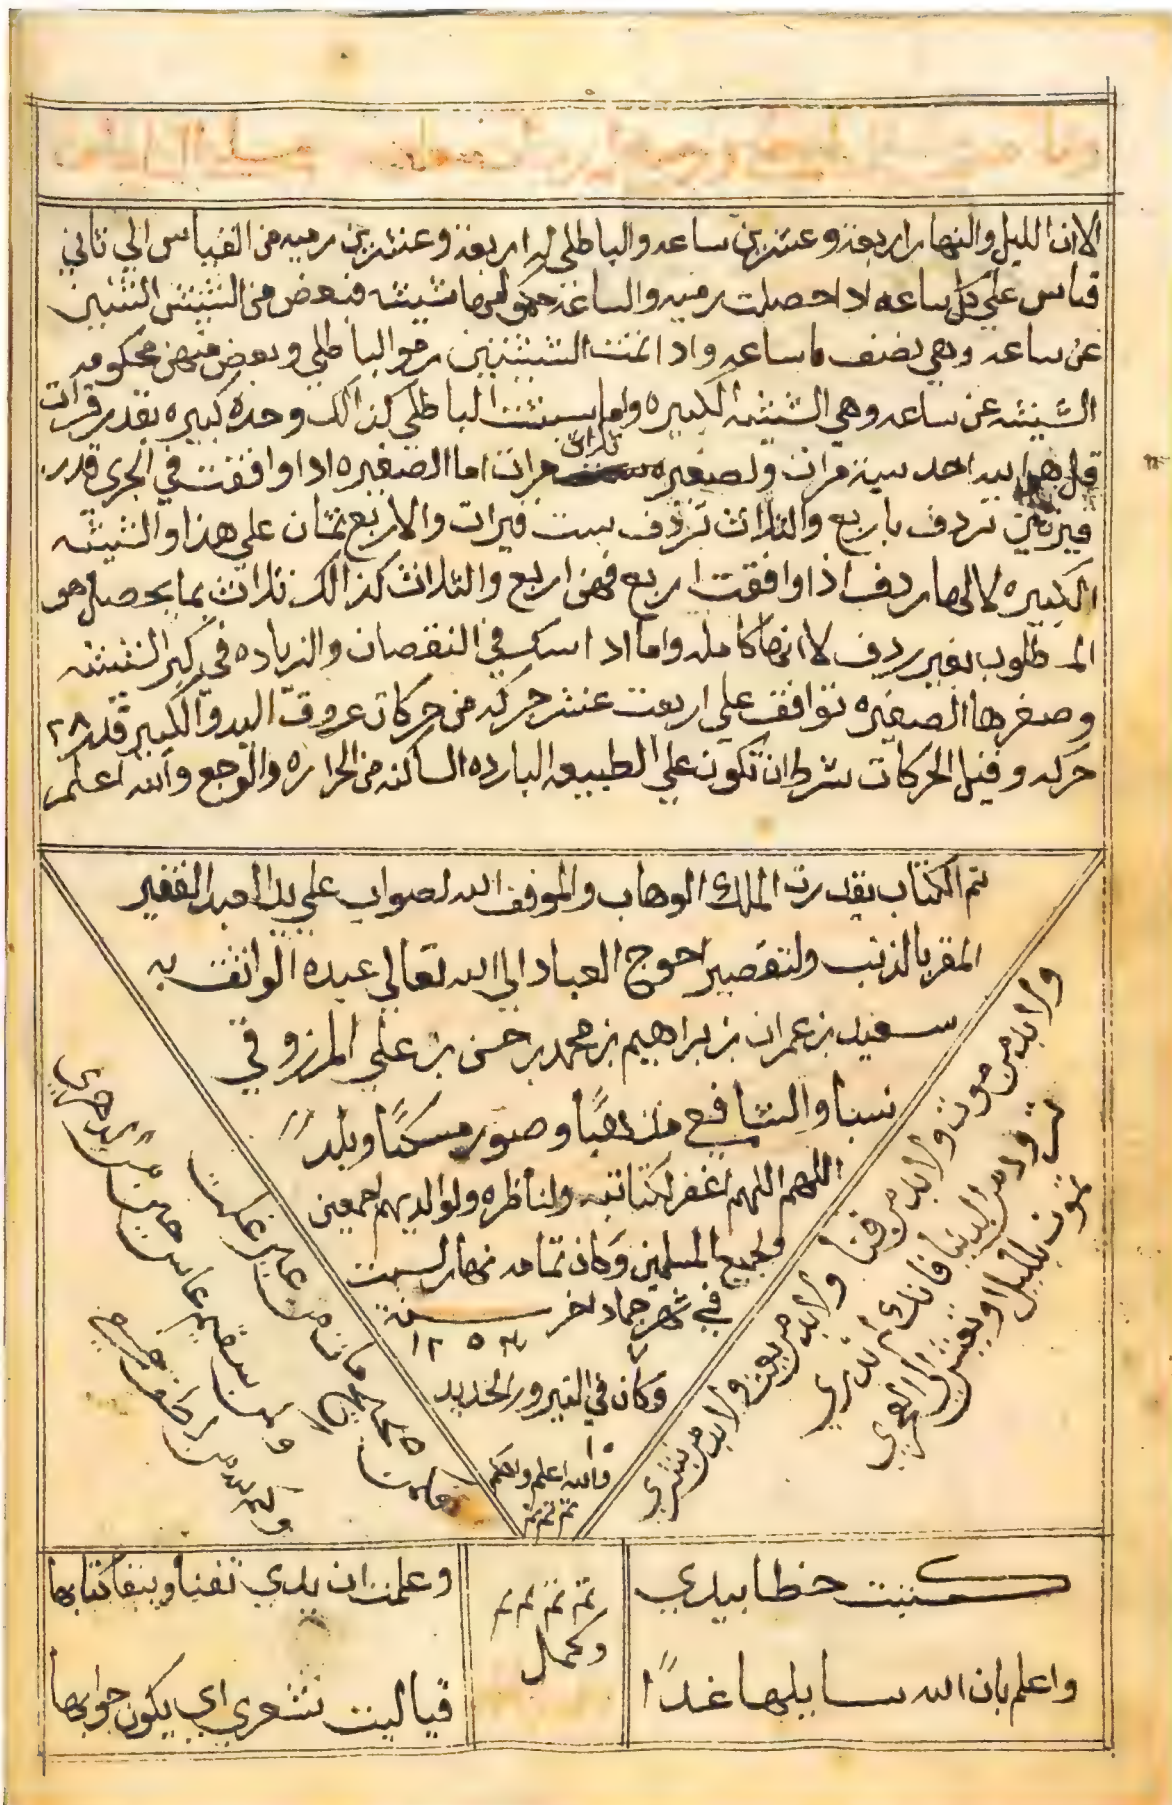 الا ان الليل والنهار اربعة وعشرين ساعه والباطلي له اربعة وعشرين رميه من القياس الي تاني
قياس علي كل ساعه اذا حصلت رميه والساعة حمولها شيشه فبعض من الشيش الشيشتين
عن ساعه وهي نصف ساعه واذا اتمت الشيشتين رمو الباطلي وبعض منهن محكومه
الشيشه عن ساعه وهي الشيشه الكبيره واما شيشت الباطلي كذالك وحده كبيره بقدر قرات
قل هو احد ستة مرات ولصغيره ثلاث مرات اما الصغيره اذا وافقت في الجري قدر
تردف باربع والثلاث تردف ست والاربع ثمان علي هذا والشيشه
الكبيره لا لها ردف اذا وافقت اربع فهن اربع والثلاث كذالك ثلاث بما يحصل هو
المطلوب بغير ردف لا انها كامله واما اذا في النقصان والزياده في كبر الشيشه
وصغرها الصغيره توافق علي اربعت عشر حركه من حركات عروق اليد والكبير قدر ٢٨
حركه وقيل الحركات شرط ان تكون علي الطبيعه البارده الساكنه من الحراره والوجع والله اعلم
تم الكتاب بقدرت الملك الوهاب والموفق الله لصواب علي يد العبد الفقير
المقر بالذنب ولتقصير احوج العباد الي الله تعالي عبده الواثق به
سعيد بن عمران بن براهيم بن محمد بن حسن بن علي المرزوقي
نسبا والشافعي مذهبًا وصور مسكنًا وبلدًا
اللهم اللهم اغفر لكتاتبه ولناظره ولوالديهم اجمعين
ولجميع المسلمين وكان تمامه نهار لسبت
في شهر جماد لخر سنة
وكان في النيروز الجديد
والله اعلم واحكم
تم تم تم
ولا بد من موت ولا بد من فنا ولا بد من بعث ولا بد من
تزود من الدنيا فانك لا تدري
تموت بلليل او تعيش الي الفجري
وكم من صحيح مات من غير علت
وكم من سقيم عاش حين من الدهري
كتبت خطا بيدي
وعلمت ان يدي تفنا ويبقا كتابها
تم تم تم تم
وكمال
واعلم بان الله سايلها غدًا
فياليت شعري اي يكون جوابها